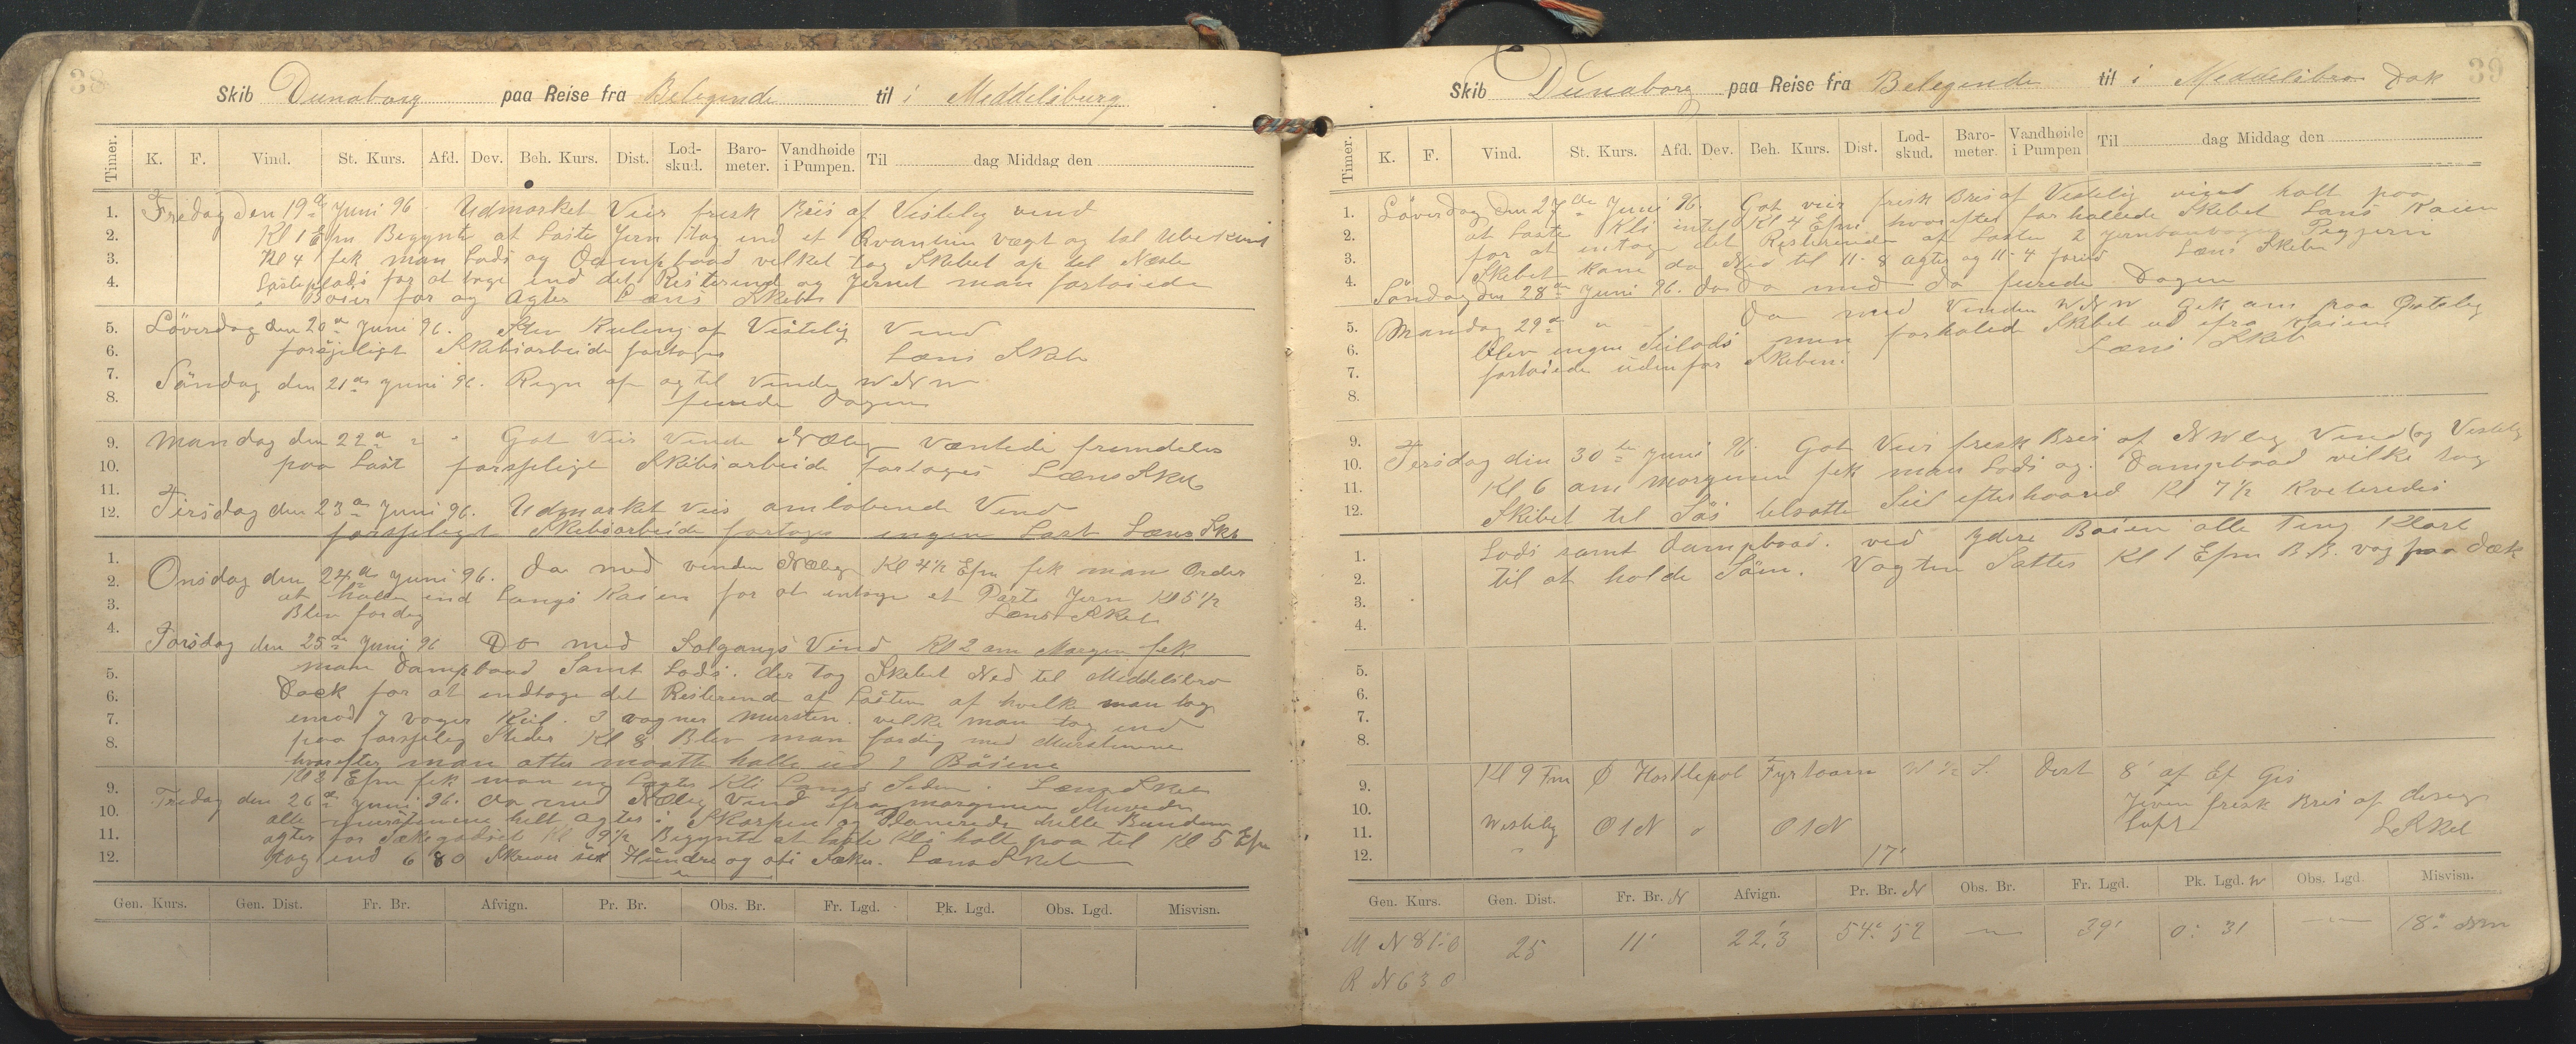 38
Skib Dunaborg paa Reise fra Belegende til i Meddelsburg
Timer. K. F. Vind. St. Kurs. Afd. Dev. Beh. Kurs. Dist. Lod-skud. Baro-meter. Vandhøide i Pumpen. Til dag Middag den
1. Fredag den 19de Juni 96. Udmarket Veir frisk Bris af Vistelig vind
2. Kl 1 Efm Begynte at Laste Jern tog ind et Qvantum vægt og tal Ubekent
3. Kl 4 fik man Lods og Dampbaad velket tog Skibet op til Næste
4. Lasteplads for at tage ind det Resterend og Jernet man fortøiede
Boier for og Agter Læns Skib
5. Løverdag den 20de Juni 96. Stiv Kuling af Vistelig Vind
6. forsjeligt Skibsarbeide fortoges Læns Skib
7. Søndag den 21de Juni 96. Regn af og til Vinden W N W
8. firede Dagen
9. Mandag den 22de " " Got Veir Vinde NØlig Væntede fremdeles
10. paa Last forsjeligt Skibsarbeide fortoges Læns Skib
11.
12. Tirsdag den 23de Juni 96. Udmarket Veir omløbende Vind
forsjeligt Skibsarbeide fortoges ingen Last Læns Skib
1. Onsdag den 24de Juni 96. Do med vinden NØlig Kl 4½ Efm fik man Order
2. at hale ind Langs Kaien for at intage et Parti Jern Kl 5½
3. Blev fordig Læns Skib
4. Torsdag den 25de Juni 96 Do med Solgangs Vind Kl 2 am Morgen fik
5. man Dampbaad Samt Lods. der tog Skibet Ned til Meddelsbro
6. Dock for at indtage det Resterende af Lasten af hvilke man tog
7. 7 vogner Kul. 3 vogner Mursten. velke man tog ind
8. paa forsjelig Steder Kl 8 Blev man fordig med Murstenene
hvorefter man atter maatte halle ud i Bøiene
9. Kl 2 Efm fik man en Lagter Kli Langs Seden. Læns Skib
10. Fredag den 26de Juni 96. Do med NØlig Vind fra morgenen
alle murstenene helt Agter i Skarpen og Planerede hele Bunden
11. agter for Sækegodset Kl 9½ Begynte at laste Kli holt paa til Kl 5 Efm
12. tog ind 680 Skriver Hundre og oti Sæker. Læns Skib
Gen. Kurs. Gen. Dist. Fr. Br. Afvign. Pr. Br. Obs. Br. Fr. Lgd. Pk. Lgd. Obs. Lgd. Misvisn.
39
Skib Dunaborg paa Reise fra Belegende til i Meddelsbro Dok
Timer. K. F. Vind. St. Kurs. Afd. Dev. Beh. Kurs. Dist. Lod-skud. Baro-meter. Vandhøide i Pumpen Til dag Middag den
1. Løverdag den 27de Juni 96. Got veir frisk Bris af Vistelig vind holt paa
2. at Laste Kli intil Kl 4 Efm hvorefter forhallede Skibet Lans Kaien
3. for at intage det Resterende af Lasten 2 Jernbanvogner
4. Skibet kom da Ned til 11-8 Agter og 11-4 forud Læns Skibe
Søndag den 28de Juni 96. Do med Do firede Dagen
5. Mandag 29de " " Do med Vinden W N W Gik am paa Østelig
6. blev ingen Seilads men forhaled Skibet ud fra Kaiene
7. fortøiede udenfor Skibene. Læns Skib
8.
9. Tirsdag din 30te Juni 96. Got Veir frisk Bris af N Wlig Vind (og Vestlig
10. Kl 6 am Morgenen fik man Lods og Dampbaad vilke tog
11. Skibet til Søs tilsatte Seil efterhaand Kl 7½ Kveteredes
12.
1. Lods samt Dampbaad. ved Ydere Bøien alle Ting Klart
2. til at holde Søen. Vagten Sattes Kl 1 Efm B.B. vag paa Dæk
3.
4.
5.
6.
7.
8.
9. Kl 9 Fm Ø Hartlepol Fyrtaarn W ½ S. Dist 8' af Ef Gis
10. Jevn frisk Bris af
11. Westelig O t N o O t N Luft L Skib
12. " 17'
Gen. Kurs. Gen. Dist. Fr. Br. N Afvign. Pr. Br. N Obs. Br. Fr. Lgd. Pk. Lgd. W Obs. Lgd. Misvisn.
M N 81.0 25 11' 22,3 54° 52 — 39' 0° 31 —
R N 63 0